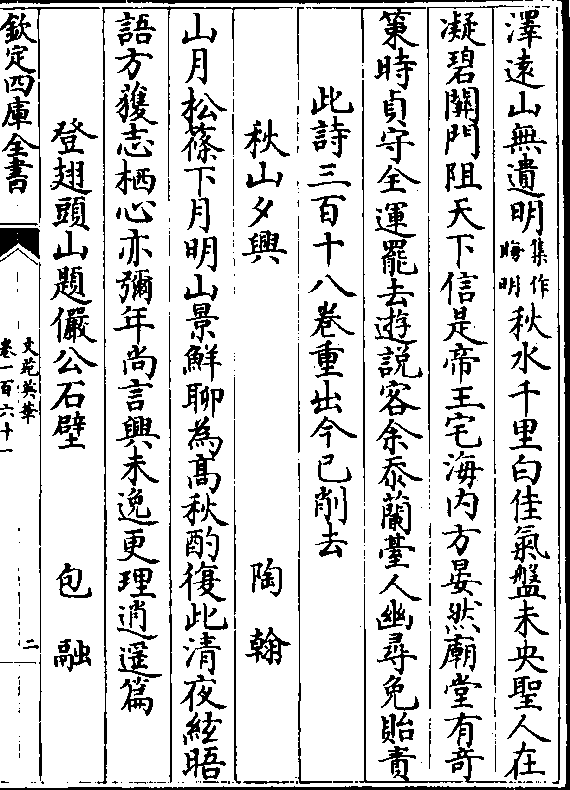 澤遠山無遺明集作晦明秋水千里白佳氣盤未央聖人在
凝碧關門阻天下信是帝王宅海内方晏然廟堂有奇
策時貞守全運罷去遊説客余忝蘭臺人幽尋免貽責
此詩三百十八卷重出今已削去
秋山夕興 陶翰
山月松篠下月明山景鮮聊為髙秋酌復此清夜絃晤
語方獲志栖心亦彌年尚言興未逸更理逍遥篇
登翅頭山題儼公石壁 包融
欽定四庫全書
文苑英華
卷一百六十一
二